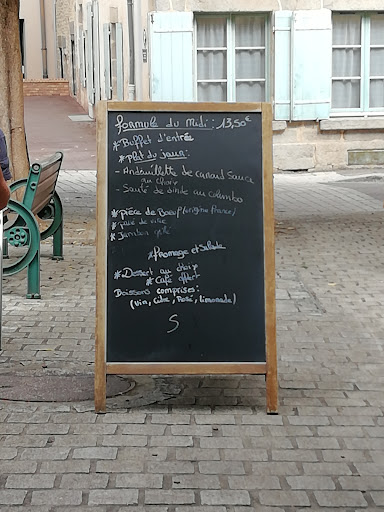 formule du Midi : 13,50€
* Buffet d'entrée
* plat du jour :
- Andouillette de canard Sauce
au choix
- Sauté de dinde au colombo
* pièce de Boeuf (origine france)
* pavé de
* Jambon
* fromage et Salade
* Dessert au choix
* Café offert
Boissons comprises :
(Vin, Cidre, Rosé, limonade)
S